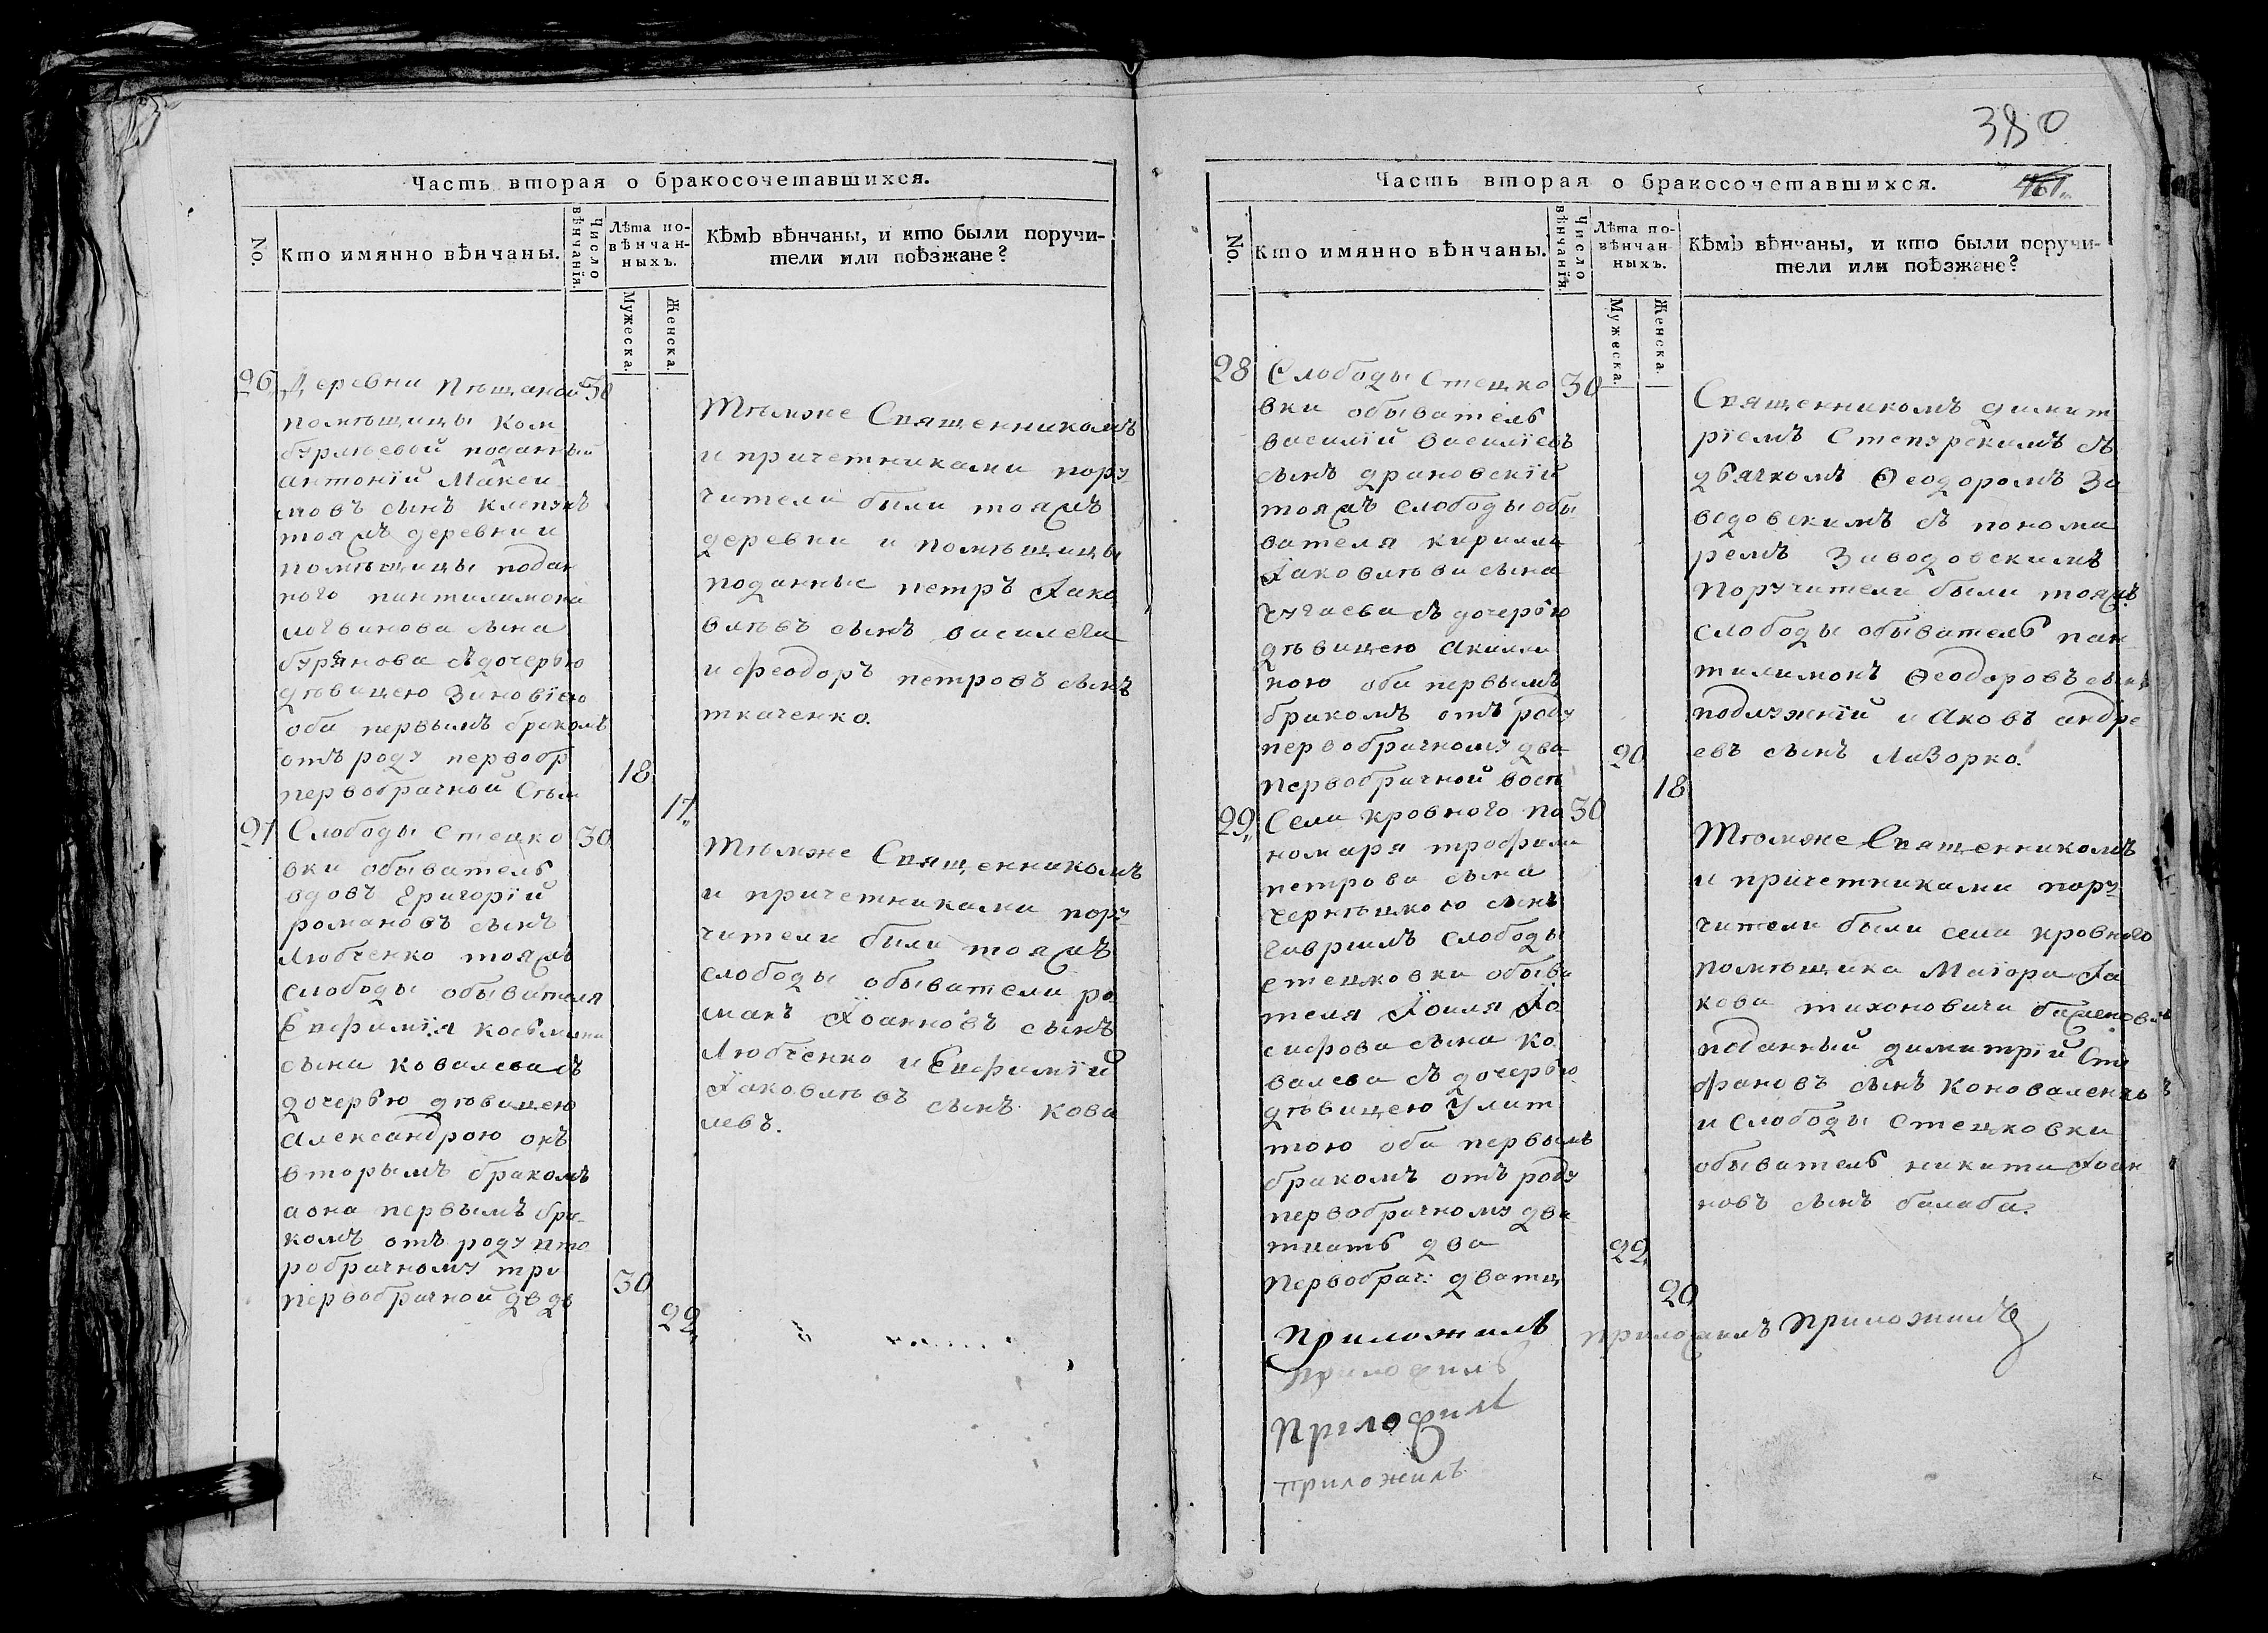 Часть вторая о бракосочетавшихся.
No.
Кто имянно вѣнчаны.
Число вѣнчанія.
Лѣта по-
вѣнчан-
ныхъ.
Мужеска.
Женска.
Кѣмъ вѣнчаны, и кто были поручи-
тели или поѣзжане?
26 Деревни Пѣщаной 30
помѣщицы Ком
бурлѣевой поданный
антоній Макси
мовъ сынъ
тояжъ деревни и
помѣщицы подан
ного пантилимона
логвинова сына
бурянова съ дочерью
дѣвицею Зиновіею
оба первымъ бракомъ
отъ роду первобр
18
первобрачной Сѣм
17
Тѣмже Священникомъ
и причетниками пору
чители были тояжъ
деревни и помѣщицы
поданные петръ Іако
влѣвъ сынъ василега
и феодоръ петровъ сынъ
ткаченко.
27 Слободы Стецко 30
вки обыватель
вдовъ Григорій
романовъ сынъ
Любченко тояжъ
слободы обывателя
Евфимія косьмина
сына ковалева съ
дочерью дѣвицею
Александрою онъ
вторымъ бракомъ
а она первымъ бра-
комъ отъ роду вто
робрачному три
30
первобрачной дв дв
22
Тѣмже Священникомъ
и причетниками пору
чители были тояжъ
слободы обыватели ро
манъ Іоанновъ сынъ
Любченко и Евфимій
Іаковлѣвъ сынъ кова
левъ.
380
461
Часть вторая о бракосочетавшихся.
No.
Кто имянно вѣнчаны.
Число вѣнчанія.
Лѣта по-
вѣнчан
ныхъ.
Мужеска.
Женска.
Кѣмъ вѣнчаны, и кто были поручи-
тели или поѣзжане?
28 Слободы Стецко 30
вки обыватель
василій василіевъ
сынъ драновскій
тояжъ слободы обы
вателя кирилла
Іаковлѣва сына
чугаева съ дочерью
дѣвицею Акили
ною оба первымъ
бракомъ отъ роду
первобрачному два
20
первобрачной восѣ
18
Священникомъ димит
ріемъ Степурскимъ съ
дьячкомъ Ѳеодоромъ За
водовскимъ съ понома
ремъ Заводовскимъ
Поручители были тояжъ
слободы обыватель пан
тилимонъ Ѳеодоровъ сынъ
подлужній и Аковъ андре
евъ сынъ Лазорко.
29 Села кровного по 30
номаря трофима
петрова сына
чернѣцкого сынъ
гавриилъ слободы
стецковки обыва
теля Іоиля Іо
сифова сына ко
валева съ дочерью
дѣвицею Улит
тою оба первымъ
бракомъ отъ роду
первобрачному два
тцать два
22
Первобрач: дватц
20
Тѣмже Священникомъ
и причетниками пору
чители были села кровного
помѣщика Маіора Іа
кова тихоновича
поданный димитрій Сте
фановъ сынъ Коноваленко
и Слободы Стецковки
обыватель никита Іоан
новъ сынъ балаба.
Приложилъ приложилъ Приложилъ
приложилъ
Приложилъ
приложилъ